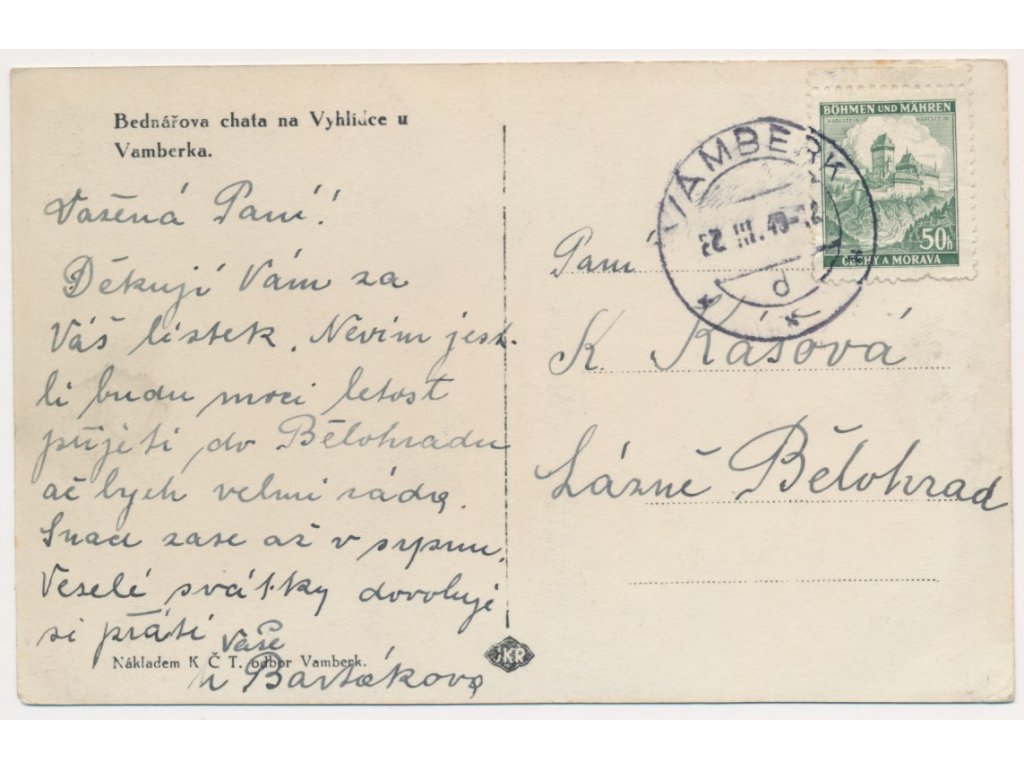 Bednářova chata na Vyhlídce u
Vamberka.
Vážená Paní!
Děkuji Vám za
Váš lístek. Nevím jest-
li budu moci letost
přijeti do Bělohradu
ač bych velmi ráda.
Snad zase až v srpnu.
Veselé svátky dovoluji
si přáti
Vaše
Bartáková
Nákladem K Č T. odbor Vamberk.
JKR
VAMBERK
III. 40-12
d
BÖHMEN UND MÄHREN
KARLSTEIN KARLŠTEJN
50h
ČECHY A MORAVA
Paní
K. Kášová
Lázně Bělohrad